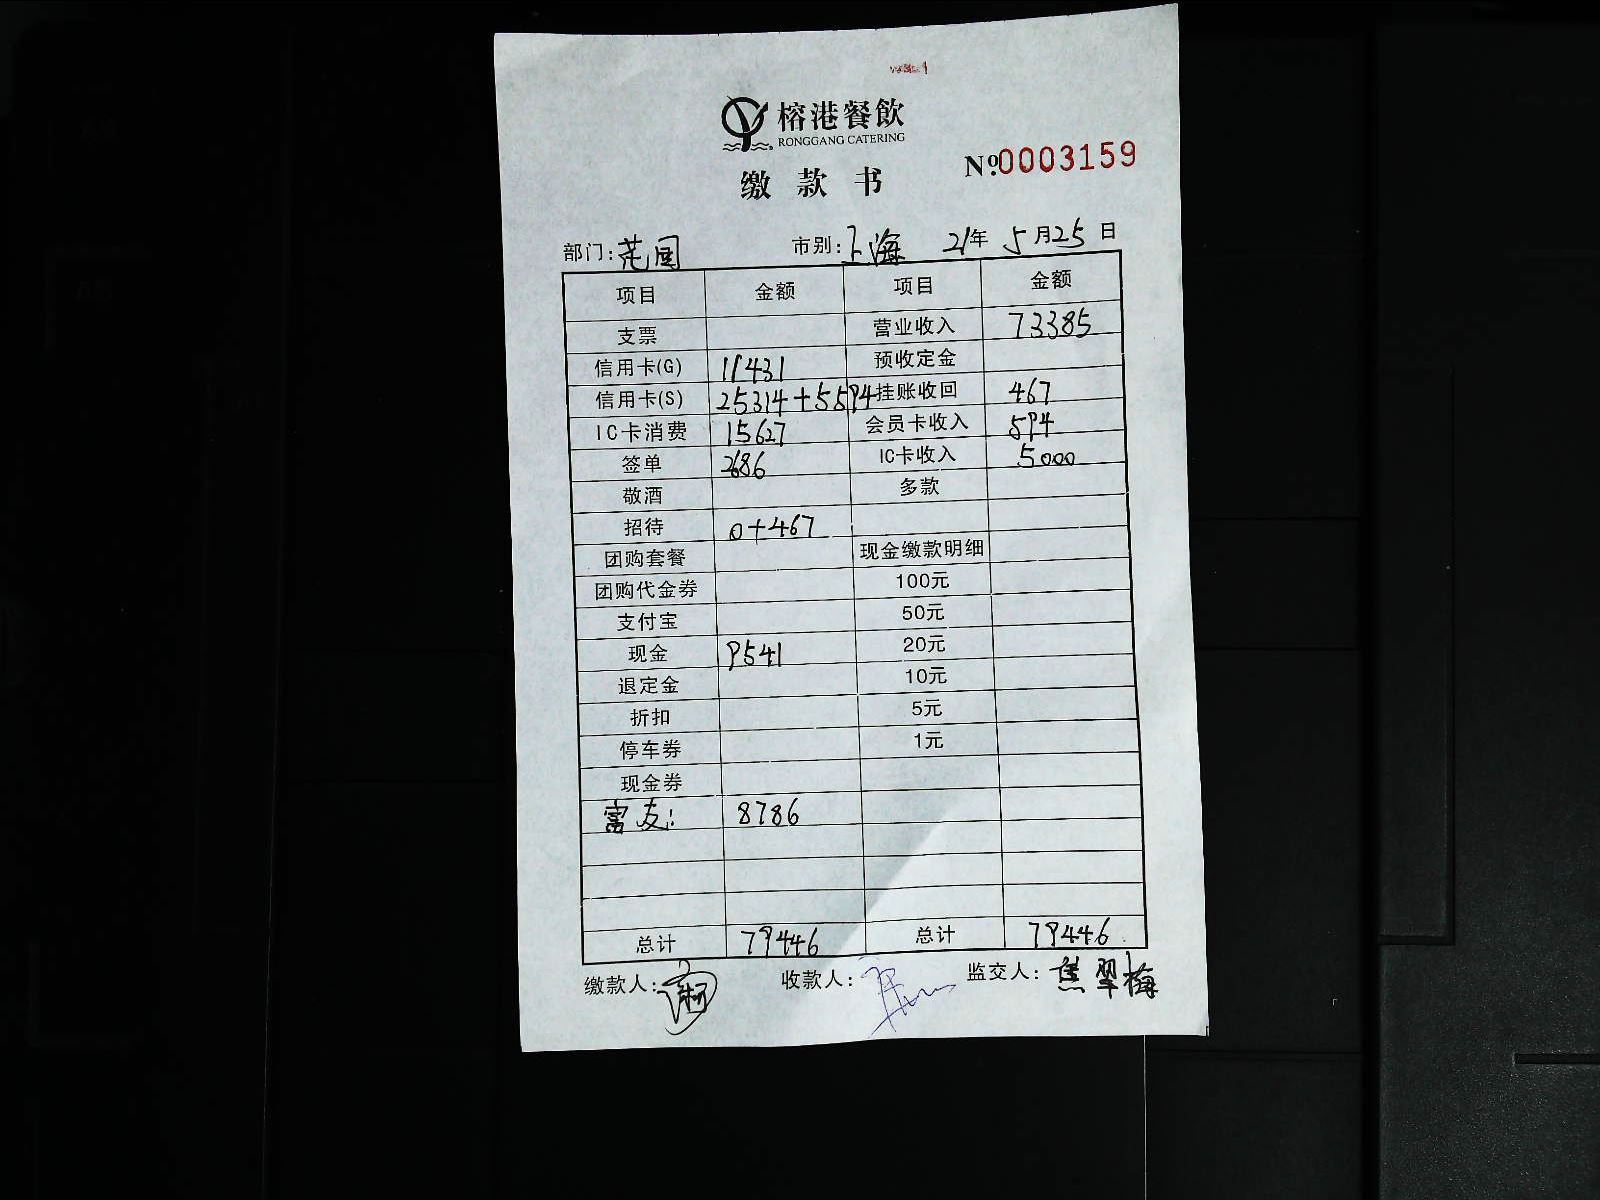 榕港餐飲
RONGGANG CATERING
缴款书
№.0003159
部门:范园 市别:上海 21年5月25日
项目 金额 项目 金额
支票 营业收入 73385
信用卡(G) 11431 预收定金
信用卡(S) 25314+5594 挂账收回 467
IC卡消费 15627 会员卡收入 594
签单 2686 IC卡收入 5000
敬酒 多款
招待 0+467
团购套餐 现金缴款明细
团购代金券 100元
支付宝 50元
现金 9541 20元
退定金 10元
折扣 5元
停车券 1元
现金券
富友: 8786
总计 79446 总计 79446
缴款人: 收款人: 监交人:焦翠梅